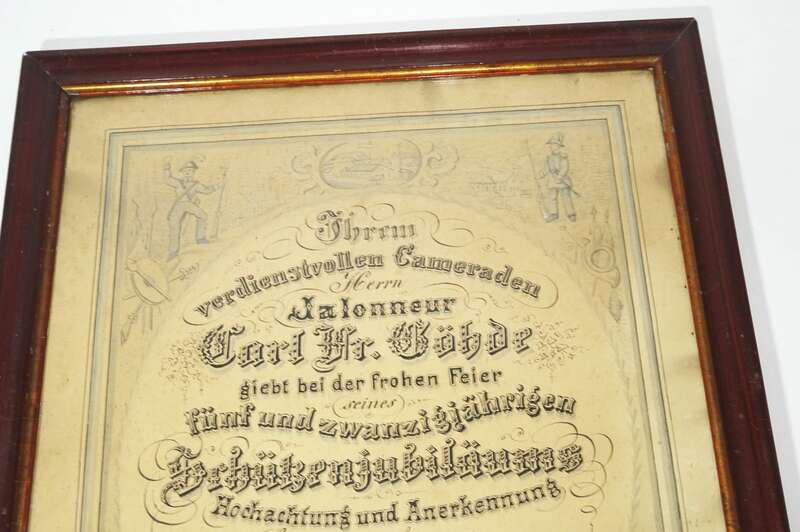 Ihrem
verdienstvollen Cameraden
Herrn
Jalonneur
Carl Fr. Göhde
giebt bei der frohen Feier
seines
fünf und zwanzigjährigen
Schützenjubiläums
Hochachtung und Anerkennung